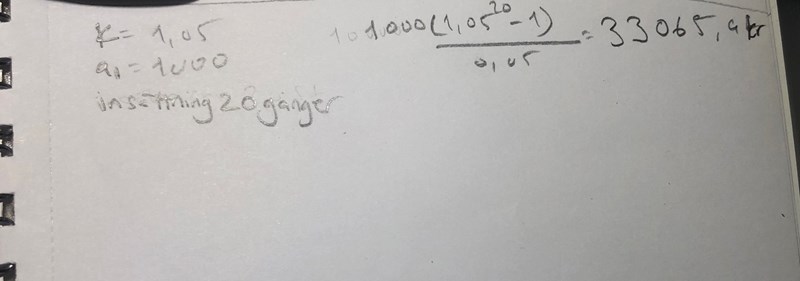 k = 1,05
a₁ = 1000
insättning 20 gånger
1000(1,05²⁰-1)
0,05
= 33065, a kr